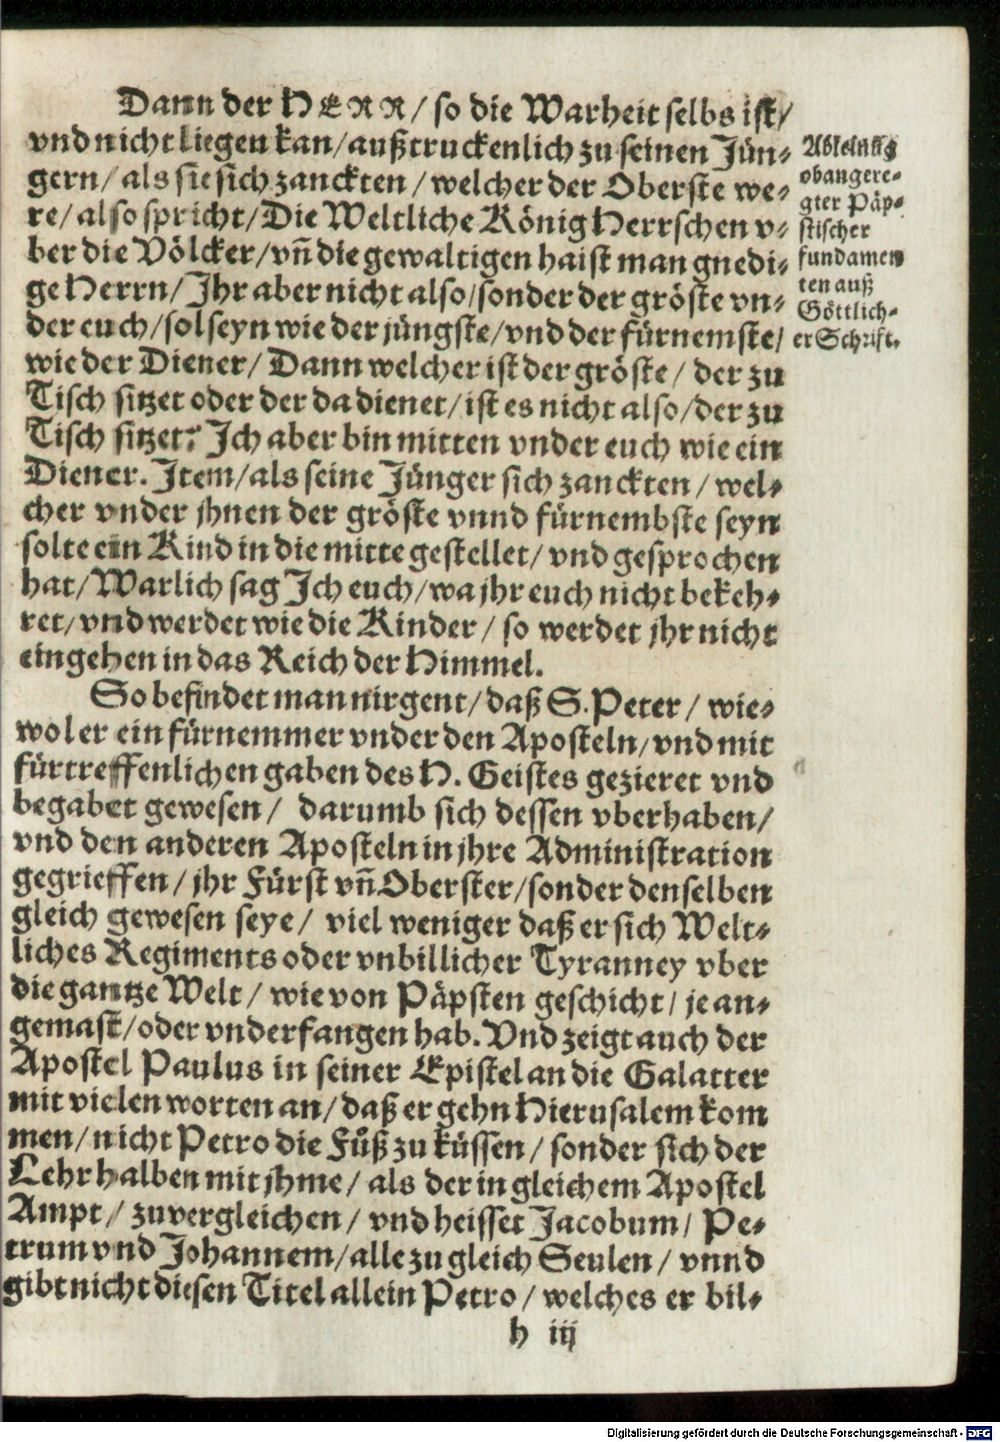 Dann der HERR/ so die Warheit selbs ist/
vnd nicht liegen kan/ außtruckenlich zu seinen Jün-
gern/ als sie sich zanckten/ welcher der Oberste we-
re/ also spricht/ Die Weltliche König Herrschen v-
ber die Völcker/ vñ die gewaltigen haist man gnedi-
ge Herrn/ Jhr aber nicht also/ sonder der gröste vn-
der euch/ sol seyn wie der jüngste/ vnd der fürnemste/
wie der Diener/ Dann welcher ist der gröste/ der zu
Tisch sitzet oder der da dienet/ ist es nicht also/ der zu
Tisch sitzet? Jch aber bin mitten vnder euch wie ein
Diener. Jtem/ als seine Jünger sich zanckten/ wel-
cher vnder jhnen der gröste vnnd fürnembste seyn
solte ein Kind in die mitte gestellet/ vnd gesprochen
hat/ Warlich sag Jch euch/ wa jhr euch nicht bekeh-
ret/ vnd werdet wie die Kinder/ so werdet jhr nicht
eingehen in das Reich der Himmel.
Ableinũg
obangere-
gter Päp-
stischer
fundamen
ten auß
Göttlich-
er Schrift.
So befindet man nirgent/ daß S. Peter/ wie-
wol er ein fürnemmer vnder den Aposteln/ vnd mit
fürtreffenlichen gaben des H. Geistes gezieret vnd
begabet gewesen/ darumb sich dessen vberhaben/
vnd den anderen Aposteln in jhre Administration
gegrieffen/ jhr Fürst vñ Oberster/ sonder denselben
gleich gewesen seye/ viel weniger daß er sich Welt-
liches Regiments oder vnbillicher Tyranney vber
die gantze Welt/ wie von Päpsten geschicht/ je an-
gemast/ oder vnderfangen hab. Vnd zeigt auch der
Apostel Paulus in seiner Epistel an die Galatter
mit vielen worten an/ daß er gehn Hierusalem kom
men/ nicht Petro die Füß zu küssen/ sonder sich der
Lehr halben mit jhme/ als der in gleichem Apostel
Ampt/ zuvergleichen/ vnd heisset Jacobum/ Pe-
trum vnd Johannem/ alle zu gleich Seulen/ vnnd
gibt nicht diesen Titel allein Petro/ welches er bil-
h iij
Digitalisierung gefördert durch die Deutsche Forschungsgemeinschaft - DFG